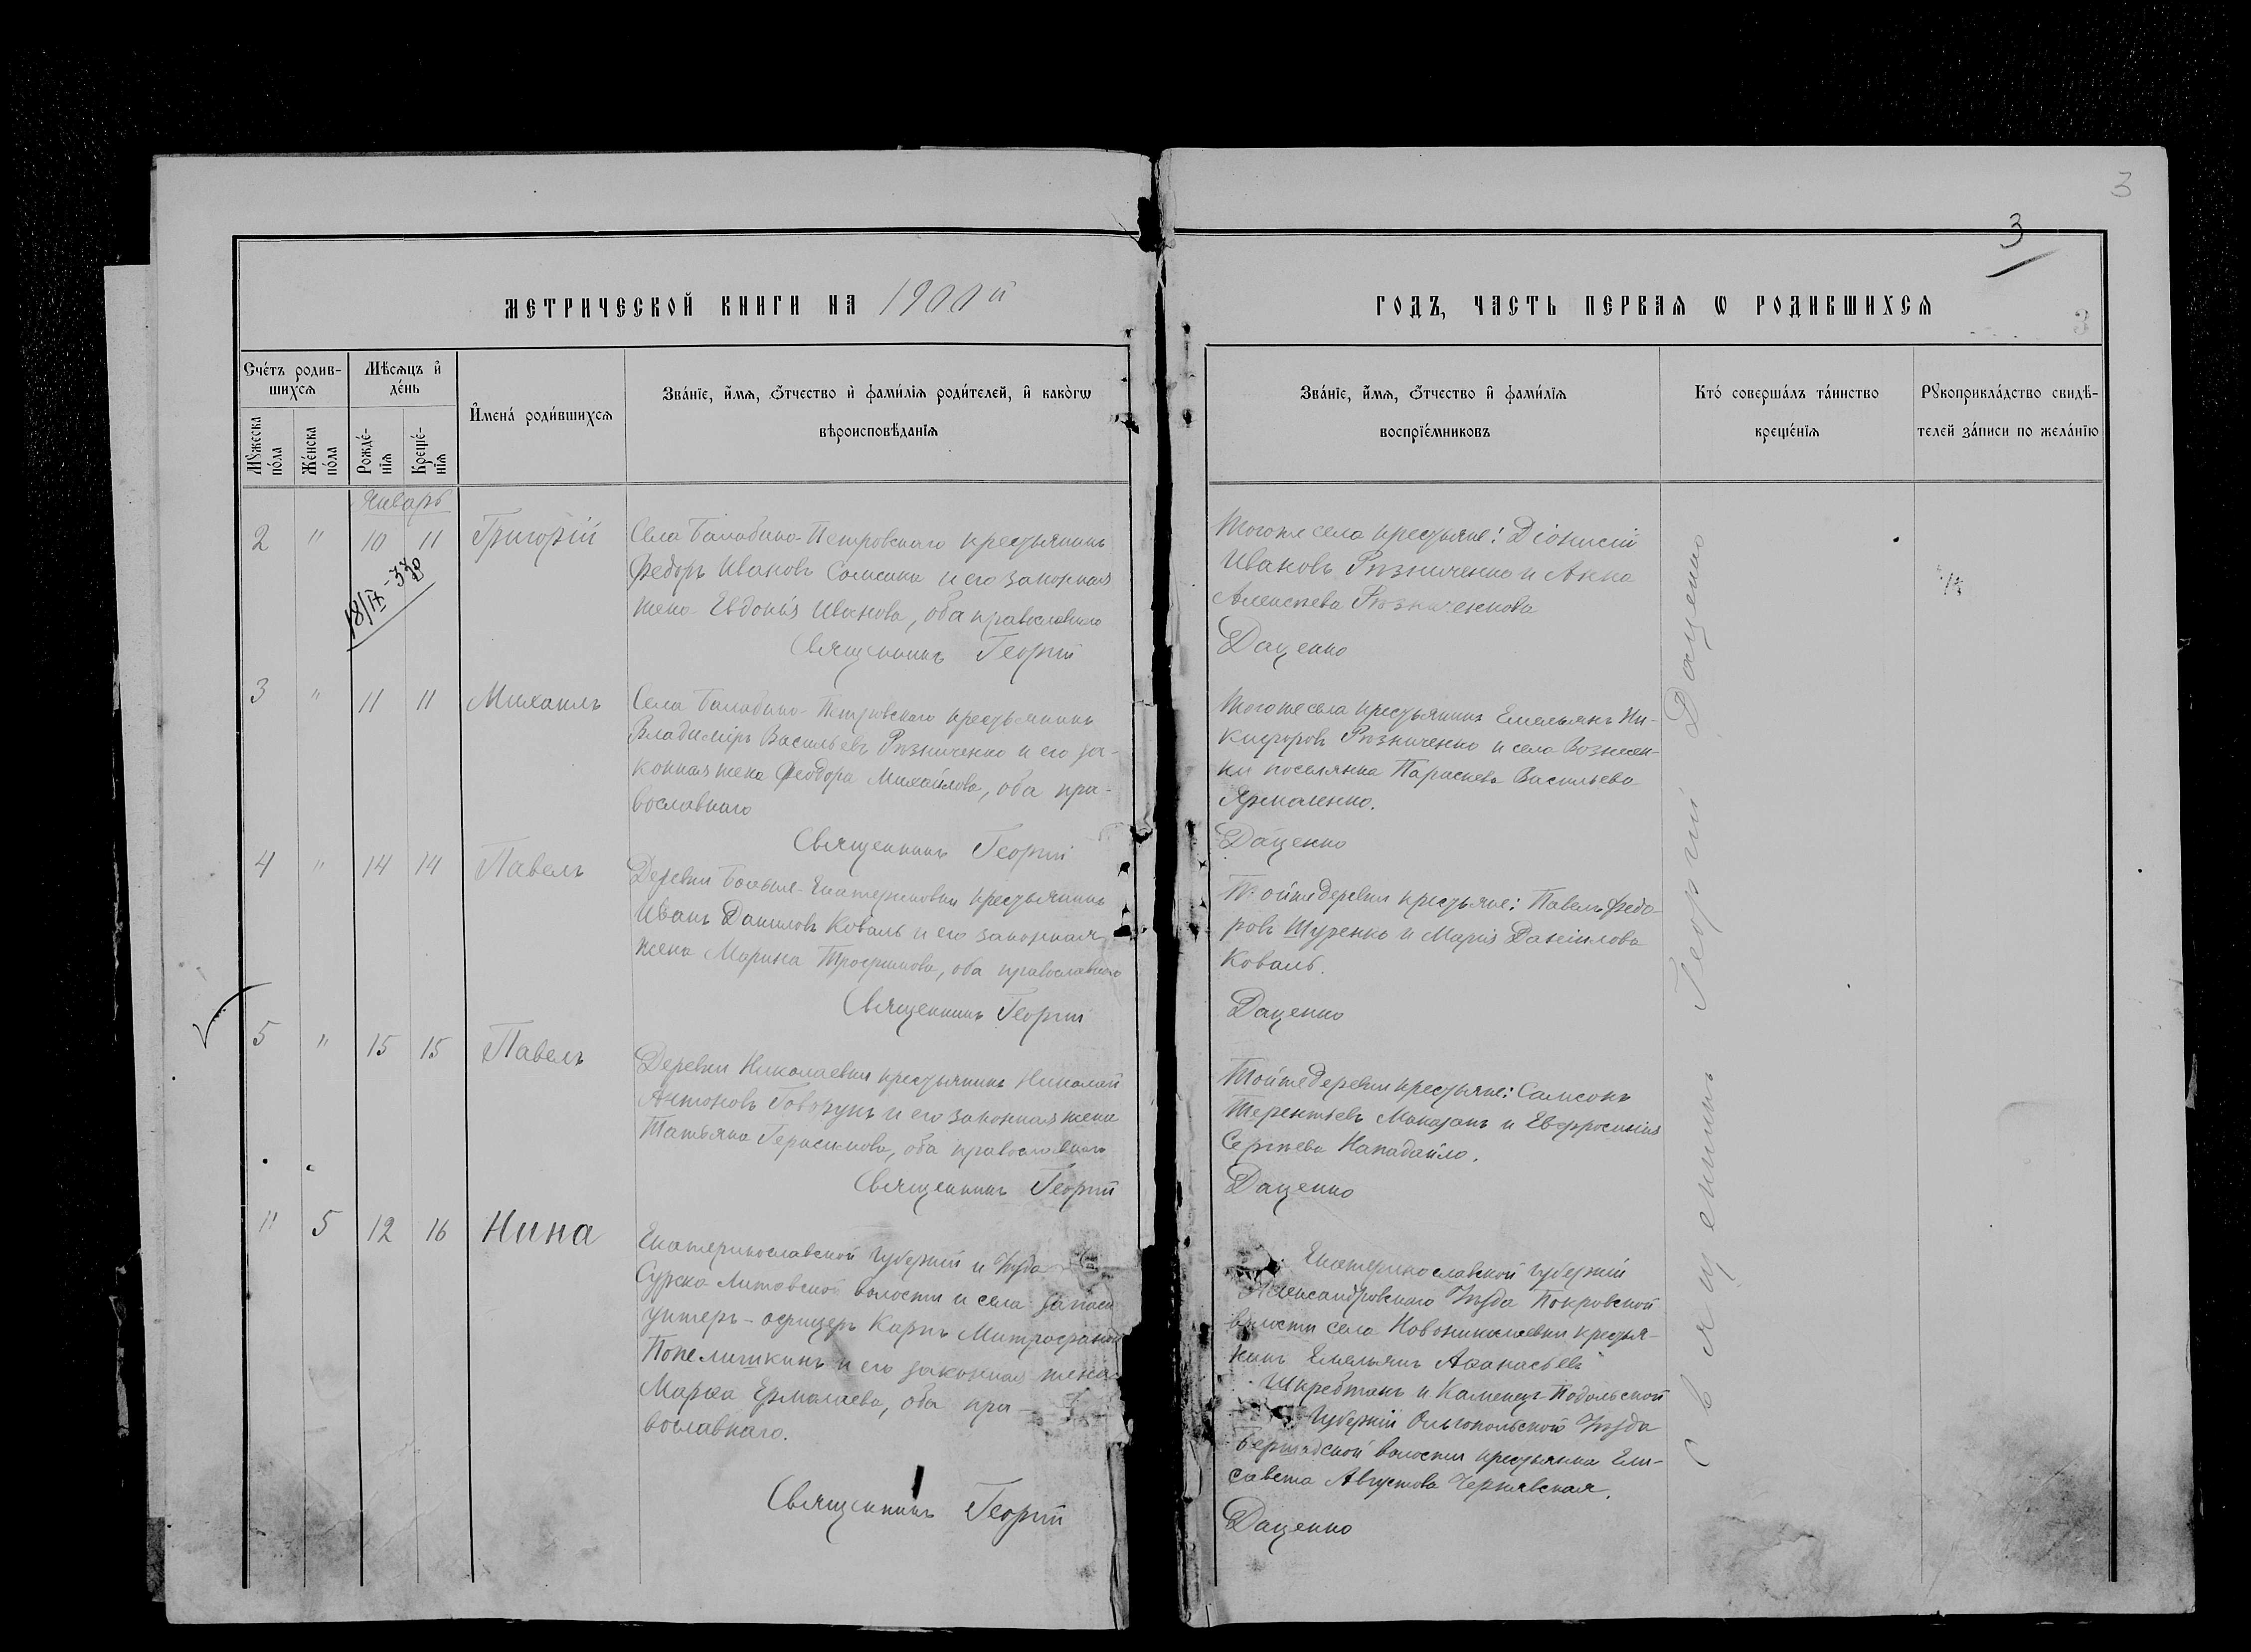 3
3
3
МЕТРИЧЕСКОЙ КНИГИ НА 1900й
ГОДЪ, ЧАСТЬ ПЕРВАЯ Ѡ РОДИВШИХСЯ
Сче́тъ родив-
шихсѧ
Мѣсѧцъ и҆
де́нь
Мꙋжеска
по́ла
Же́нска
по́ла
Рожде́-
нїѧ
Креще́-
нїѧ
И҆мена̀ роди́вшихсѧ
Зва́нїе, и҆́мѧ, ѻ҆́тчество и҆ фами́лїѧ роди́телей, и҆ како́гѡ
вѣроисповѣ́данїѧ
Зва́нїе, и҆́мѧ, ѻ҆́тчество и҆ фами́лїѧ
воспрїе́мниковъ
Кто̀ соверша́лъ та́инство
креще́нїѧ
Рꙋкоприкла́дство свидѣ́-
телей за́писи по жела́нїю
Январь
2 " 10 11 Григорій
18/IX - 33
Села Балабино-Петровскаго крестьянинъ
Федоръ Ивановъ и его законная
жена Евдокія Иванова, оба православнаго
Священникъ Георгій
Тогоже села крестьяне: Діонисій
Ивановъ Рѣзниченко и Анна
Алексѣева Рѣзниченкова
Даценко
3 " 11 11 Михаилъ
Села Балабино-Петровскаго крестьянинъ
Владиміръ Васильевъ Рѣзниченко и его за-
конная жена Феодора Михайлова, оба пра-
вославнаго
Священникъ Георгій
Тогоже села крестьянинъ Емельянъ Ни-
кифоровъ Рѣзниченко и села Вознесен-
ки поселянка Параскева Васильева
Ярмаленко.
Даценко
4 " 14 14 Павелъ
Деревни Больше-Екатериновки крестьянинъ
Иванъ Даниловъ Коваль и его законная
жена Марина Трофимова, оба православнаго
Священникъ Георгій
Тойже деревни крестьяне: Павелъ Федо-
ровъ Шуренко и Марія Даніилова
Коваль.
Даценко
5 " 15 15 Павелъ
Деревни Николаевки крестьянинъ Николай
Антоновъ Говорунъ и его законная жена
Татьяна Герасимова, оба православнаго
Священникъ Георгій
Тойже деревни крестьяне: Самсонъ
Терентьевъ и Евфросинія
Сергѣева Нападайло.
Даценко
" 5 12 16 Нина
Екатеринославской губерніи и уѣзда
Сурско Литовской волости и села запасн
унтеръ-офицеръ Карпъ Митрофановъ
Попелишкинъ и его законная жена
Марѳа Ермолаева, оба пра-
вославнаго.
Священникъ Георгій
Екатеринославской губерніи
Александровскаго уѣзда Покровской
волости села Новониколаевки крестья-
нинъ Емельянъ Аѳанасьевъ
и Каменецъ-Подольской
губерніи Ольгопольской уѣзда
Бершадской волости крестьянка Ели-
савета Августова Чернявская.
Даценко
Священникъ Георгій Даценко